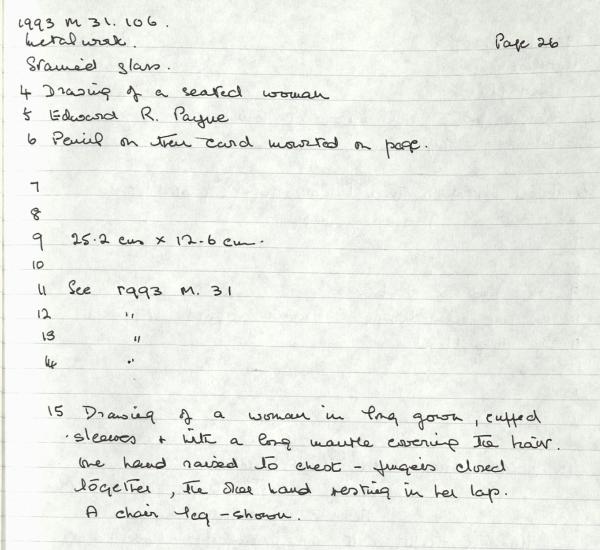 1993 M 31. 106.
Metalwork. Page 26
Stained glass.
4 Drawing of a seated woman
5 Edward R. Payne
6 Pencil on thin card mounted on page.
7
8
9 25.2 cms x 12.6 cm.
10
11 See 1993 M. 31
12 "
13 "
14 "
15 Drawing of a woman in long gown, cuffed
sleeves + with a long mantle covering the hair.
One hand raised to chest - fingers closed
together, the other hand resting in her lap.
A chair leg - shown.